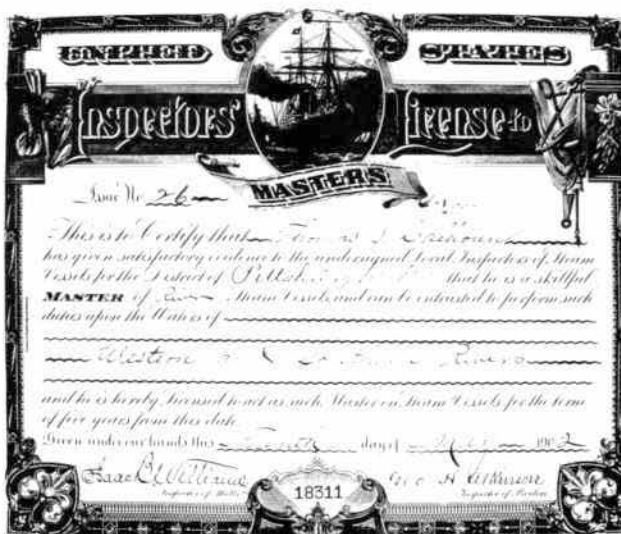 UNITED STATES
INSPECTORS' LICENSE to
MASTERS
Issue No. 26
This is to Certify that Thomas
has given satisfactory evidence to the undersigned Local Inspectors of Steam
Vessels for the District of that he is a skillful
MASTER of Steam Vessels and can be entrusted to perform such
duties upon the Waters of
Western Rivers
and he is hereby licensed to act as such Master on Steam Vessels for the term
of five years from this date.
Given under our hands this day of 1902
Isaac B Williams
Inspector of Hulls 18311 Inspector of Boilers